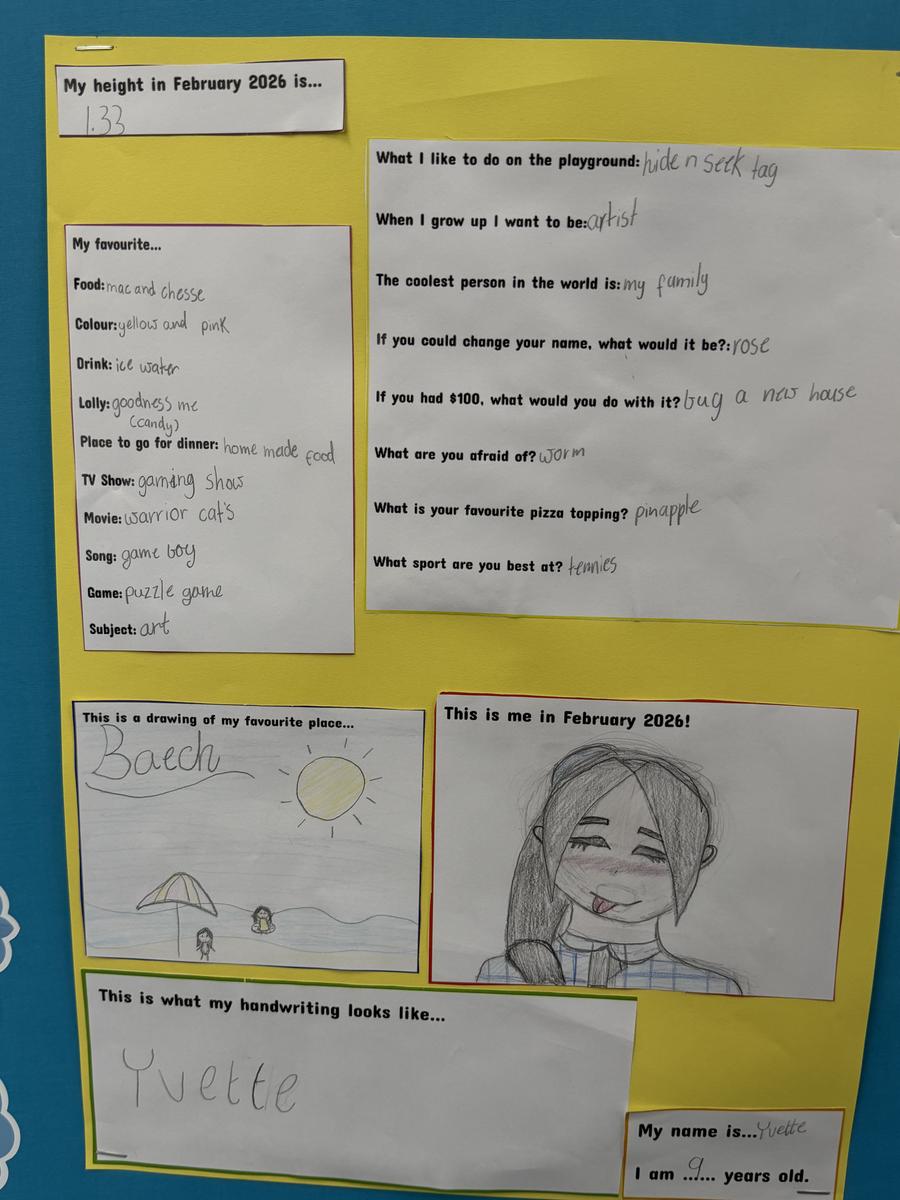 My height in February 2026 is...
1.33
What I like to do on the playground: hide n seek tag
When I grow up I want to be: artist
The coolest person in the world is: my family
If you could change your name, what would it be?: rose
If you had $100, what would you do with it? bug a new house
What are you afraid of? worm
What is your favourite pizza topping? pinapple
What sport are you best at? tennies
My favourite...
Food: mac and chesse
Colour: yellow and pink
Drink: ice water
Lolly: goodness me
(candy)
Place to go for dinner: home made food
TV Show: gaming show
Movie: warrior cat's
Song: game boy
Game: puzzle game
Subject: art
This is a drawing of my favourite place...
Baech
This is me in February 2026!
This is what my handwriting looks like...
Yvette
My name is... Yvette
I am ...9... years old.